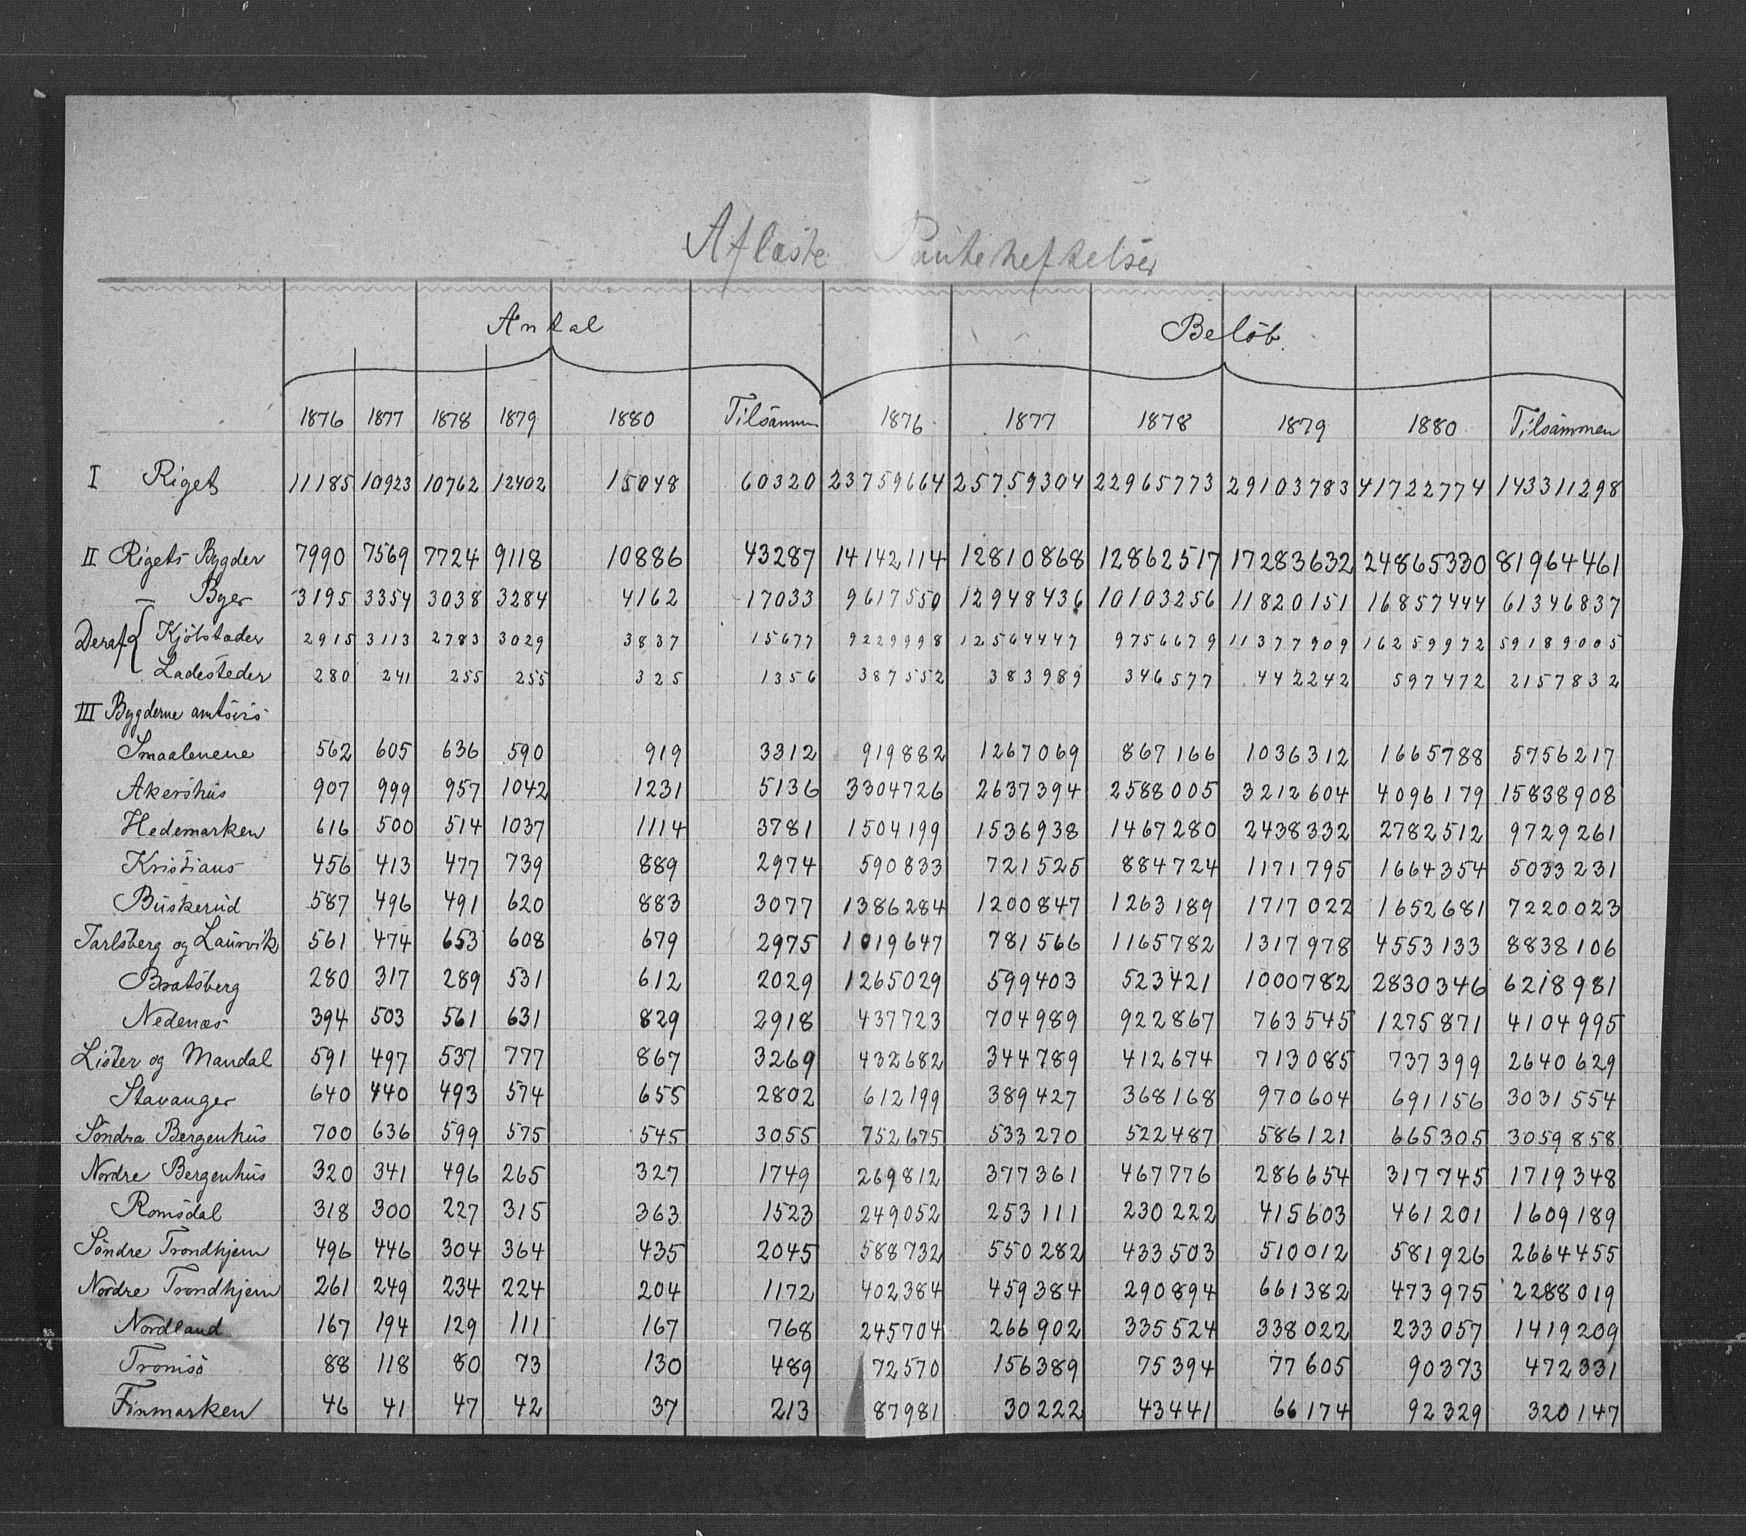 Aflöste Panteheftelser
Antal Beløb
1876 1877 1878 1879 1880 Tilsammen 1876 1877 1878 1879 1880 Tilsammen
I Riget 11185 10923 10762 12402 15048 60320 23759664 25759304 22965773 29103783 41722774 143311298
II Rigets Bygder 7990 7569 7724 9118 10886 43287 14142114 12810868 12862517 17283632 24865330 81964461
— Byer 3195 3354 3038 3284 4162 17033 9617550 12948436 10103256 11820151 16857444 61346837
Deraf Kjöbstæder 2915 3113 2783 3029 3837 15677 9229998 12564447 9756679 11377909 16259972 59189005
Ladesteder 280 241 255 255 325 1356 387552 383989 346577 442242 597472 2157832
III Bygderne amtsvis
Smaalenene 562 605 636 590 919 3312 919882 1267069 867166 1036312 1665788 5756217
Akershus 907 999 957 1042 1231 5136 3304726 2637394 2588005 3212604 4096179 15838908
Hedemarken 616 500 514 1037 1114 3781 1504199 1536938 1467280 2438332 2782512 9729261
Kristians 456 413 477 739 889 2974 590833 721525 884724 1171795 1664354 5033231
Buskerud 587 496 491 620 883 3077 1386284 1200847 1263189 1717022 1652681 7220023
Jarlsberg og Laurvik 561 474 653 608 679 2975 1019647 781566 1165782 1317978 4553133 8838106
Bratsberg 280 317 289 531 612 2029 1265029 599403 523421 1000782 2830346 6218981
Nedenæs 394 503 561 631 829 2918 437723 704989 922867 763545 1275871 4104995
Lister og Mandal 591 497 537 777 867 3269 432682 344789 412674 713085 737399 2640629
Stavanger 640 440 493 574 655 2802 612199 389427 368168 970604 691156 3031554
Söndre Bergenhus 700 636 599 575 545 3055 752675 533270 522487 586121 665305 3059858
Nordre Bergenhus 320 341 496 265 327 1749 269812 377361 467776 286654 317745 1719348
Romsdal 318 300 227 315 363 1523 249052 253111 230222 415603 461201 1609189
Söndre Trondhjem 496 446 304 364 435 2045 588732 550282 433503 510012 581926 2664455
Nordre Trondhjem 261 249 234 224 204 1172 402384 459384 290894 661382 473975 2288019
Nordland 167 194 129 111 167 768 245704 266902 335524 338022 233057 1419209
Tromsö 88 118 80 73 130 489 72570 156389 75394 77605 90373 472331
Finmarken 46 41 47 42 37 213 87981 30222 43441 66174 92329 320147